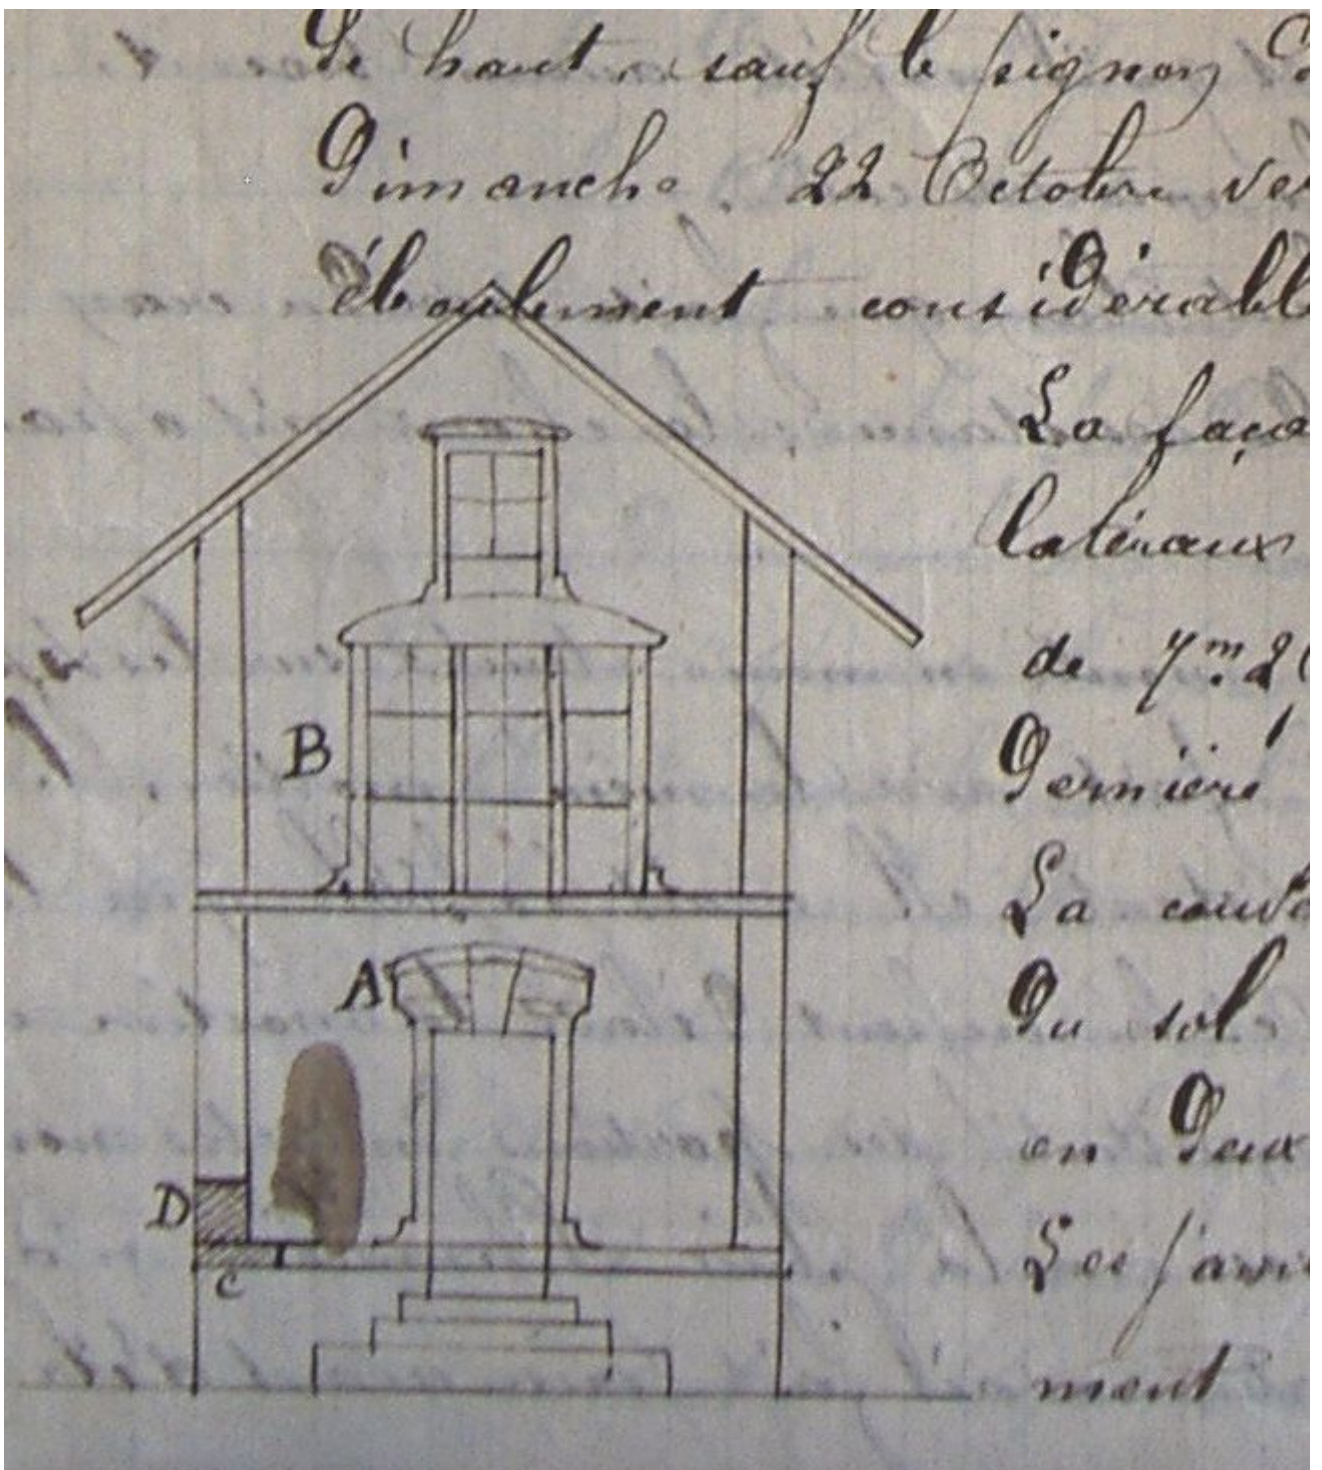 de haut sauf le pignon
Dimanche 22 Octobre ver
éboulement considérabl
La faça
latéraux
de 7m. 20
B
dernière
La
A
du sol
en deux
D
Les
C
ment